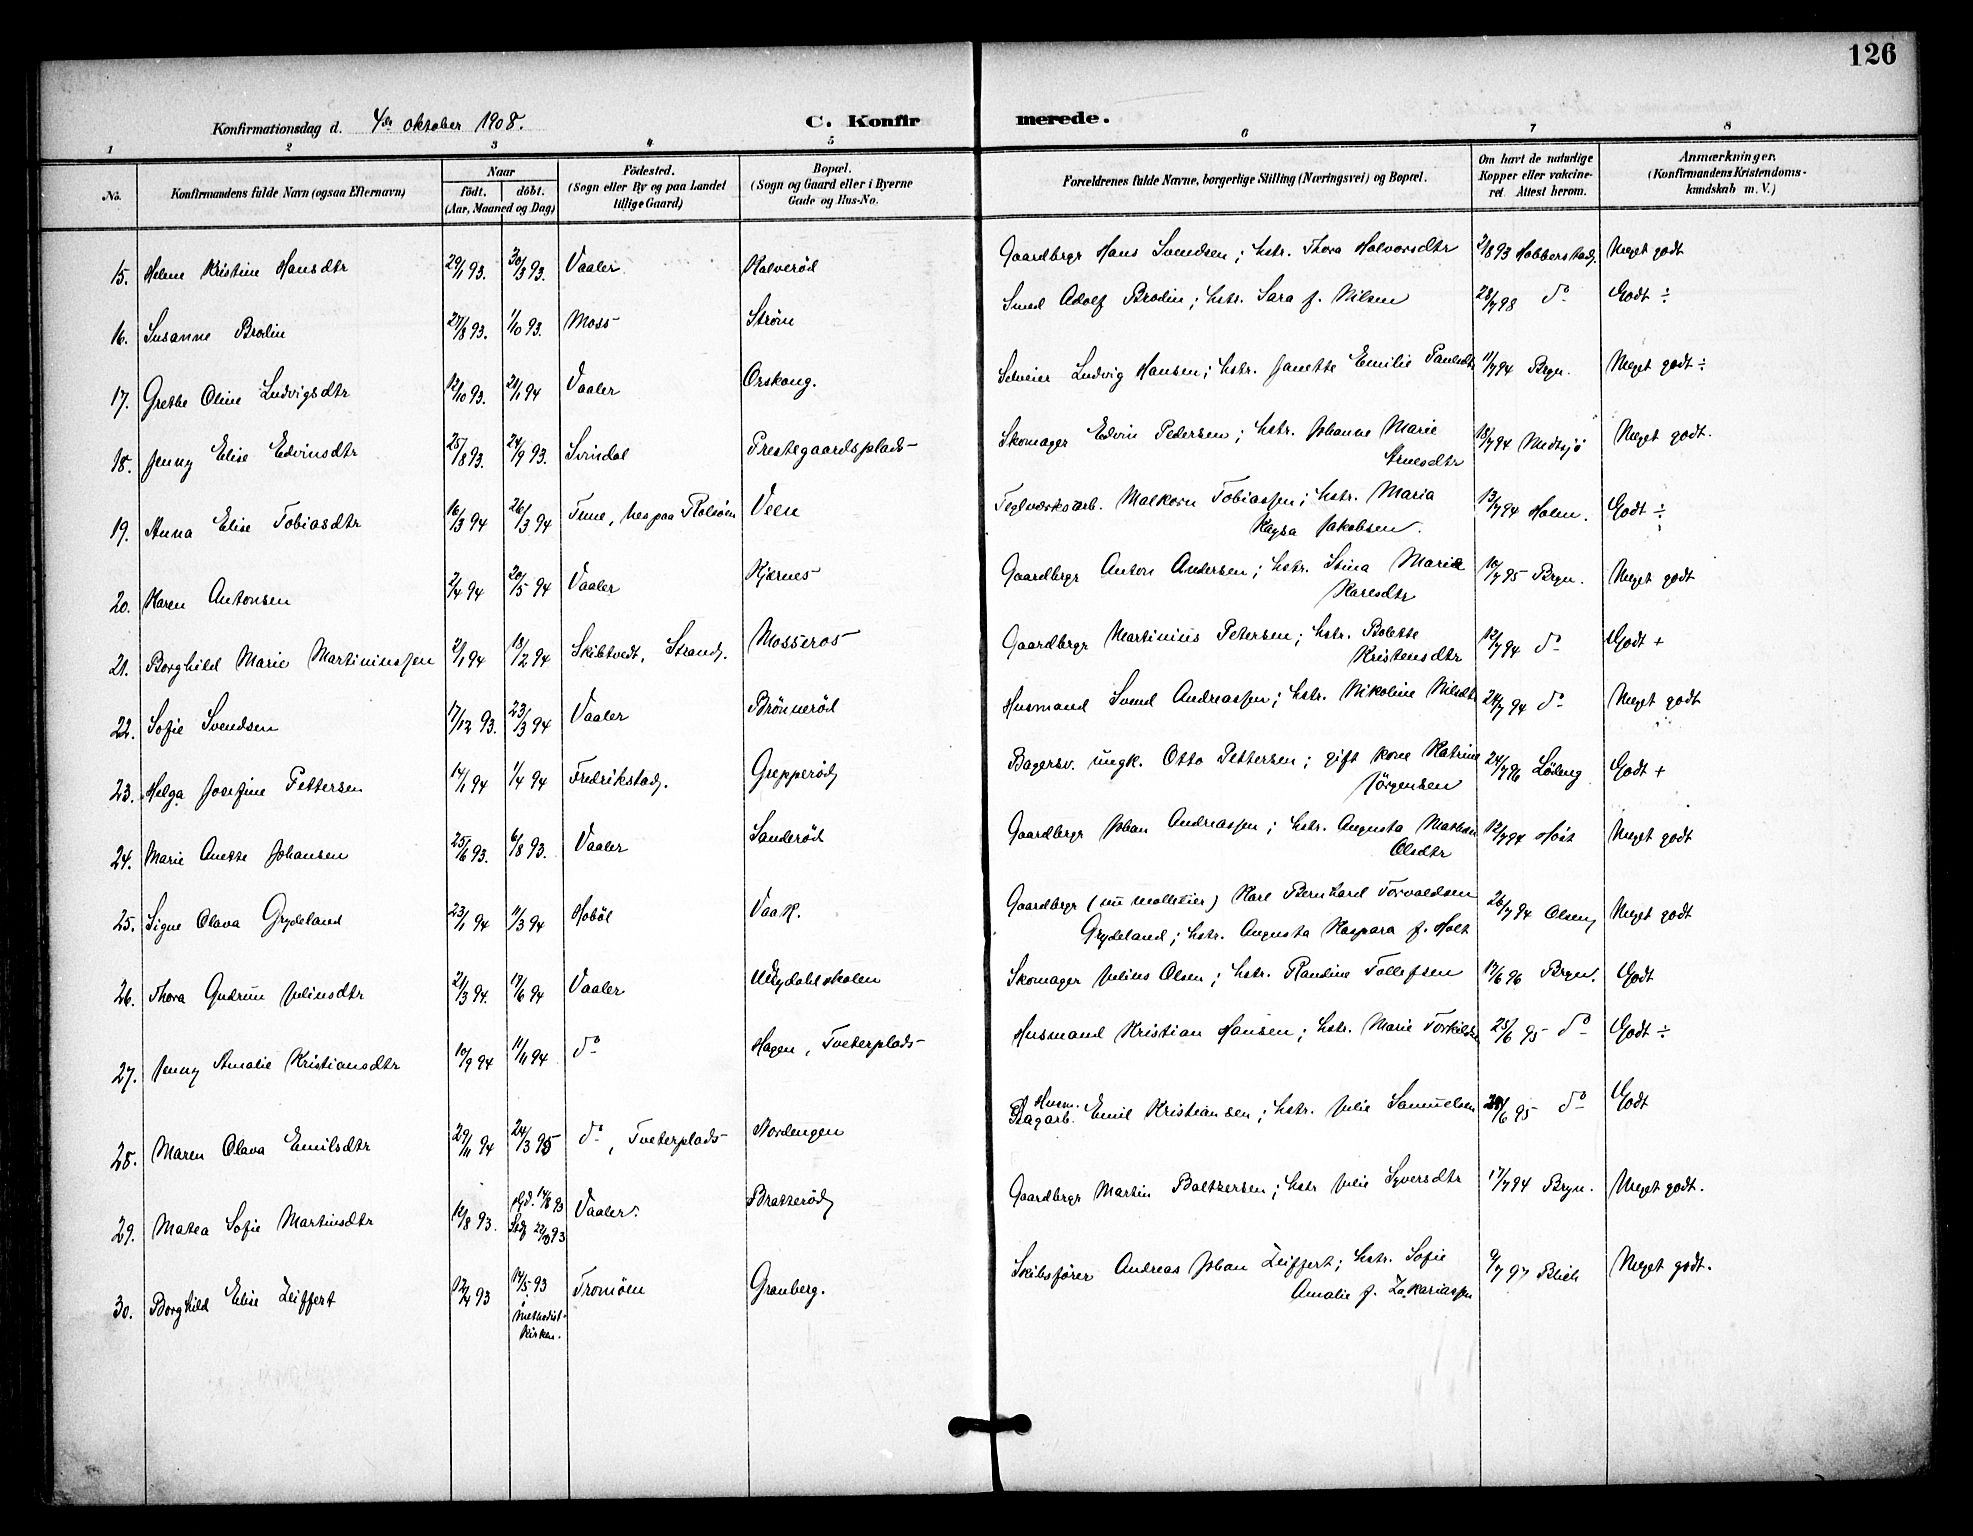 126
Konfirmationsdag d. 4de oktober 1908. C. Konfirmerede.
1 2 3 4 5 6 7 8
No. Konfirmandens fulde Navn (ogsaa Efternavn) Naar født. døbt. (Aar, Maaned og Dag) Fødested. (Sogn eller By og paa Landet tillige Gaard) Bopæl. (Sogn og Gaard eller i Byerne Gade og Hus-No. Forældrenes fulde Navne, borgerlige Stilling (Næringsvei) og Bopæl. Om havt de naturlige Kopper eller vakcineret. Attest herom. Anmærkninger. (Konfirmandens Kristendomskundskab m. V.)
15. Helene Kristine Hansdtr 29/1 93. 30/3 93. Vaaler Kalverød Gaardbrgr Hans Svendsen; hstr. Thora Halvorsdtr 2/8 93 Hobberstad. Meget godt
16. Susanne Brodin 27/8 93. 1/10 93. Moss Strøm Smed Adolf Brodin; hstr. Sara f. Nilsen 28/7 98 do Godt ÷
17. Grethe Oline Ludvigsdtr 12/10 93. 21/1 94 Vaaler Orskaug. Selveier Ludvig Hansen; hstr. Janette Emilie Paulsdtr 11/7 94 Bryn. Meget godt ÷
18. Jenny Elise Edvinsdtr 25/8 93. 24/9 93. Svindal Prestegaardsplads Skomager Edvin Pedersen; hstr. Johanne Marie
Arnesdtr 18/7 94 Medtsjö Meget godt.
19. Anna Elise Tobiasdtr 16/3 94 26/3 94 Tune, Nes paa Rolsøen Veen Teglværksarb. Malkorn Tobiassen; hstr. Maria
Kaysa Jakobsen. 13/7 94 Holm. Godt ÷
20. Karen Antonsen 2/4 94 20/5 94 Vaaler Kjærnes Gaardbrgr Anton Andersen; hstr. Stina Marie
Karlsdtr 10/7 95 Bryn. Meget godt
21. Borghild Marie Martiniussen 2/1 94 18/2 94 Skibtvedt, Strand. Mosseros Gaardbrgr Martinius Petersen; hstr. Bolette
Kristensdtr 12/7 94 do Godt +
22. Sofie Svendsen 17/12 93. 23/3 94 Vaaler Brönnerød Husmand Svend Andreassen; hstr. Nikoline Nilsdtr 24/7 94 do Meget godt
23. Helga Josefine Pettersen 14/1 94 1/4 94 Fredrikstad. Grepperød Bagersv. ungk. Otto Pettersen; gift kone Katrine
Jörgensen 24/7 96 Löberg Godt +
24. Marie Anette Johansen 25/6 93. 6/8 93. Vaaler Sanderød Gaardbrgr Johan Andreassen; hstr. Augusta Mathea
Olsdtr 12/7 94 Høst Meget godt
25. Signe Olava Grydeland 23/1 94 11/3 94 Hobøl Vaak. Gaardbrgr (nu mølleeier) Karl Bernhard Torvaldsen
Grydeland; hstr. Augusta Kaspara f. Holt 26/7 94 Olsen Meget godt
26. Thora Gudrun Juliusdtr 21/3 94. 17/6 94 Vaaler Skomager Julius Olsen; hstr. Randine Tollefsen 17/6 96 Bryn. Godt
27. Jenny Amalie Kristiansdtr 10/9 94 11/11 94 do Hagen, Tveterplads Husmand Kristian Hansen; hstr. Marie Torkildsen 25/6 95 do Godt ÷
28. Maren Olava Emilsdtr 29/11 94 24/3 95 do, Tveterplads Nordengen Husm.
Dagarb. Emil Kristiansen; hstr. Julie Samuelsen 28/6 95 do Godt
29. Matea Sofie Martinsdtr 10/8 93. hjd. 14/8 93
Stdf. 22/10 93 Vaaler. Bratterød Gaardbrgr Martin Baltzersen; hstr Julie Syversdtr 17/7 94 Bryn. Meget godt.
30. Borghild Elise Zeiffert 12/4 93 14/5 93
i
Methodist-
Kirken. Tromöen Granberg. Skibsfører Andreas Johan Zeiffert; hstr. Sofie
Amalie f. Zakariassen 9/7 97 Blich Meget godt.